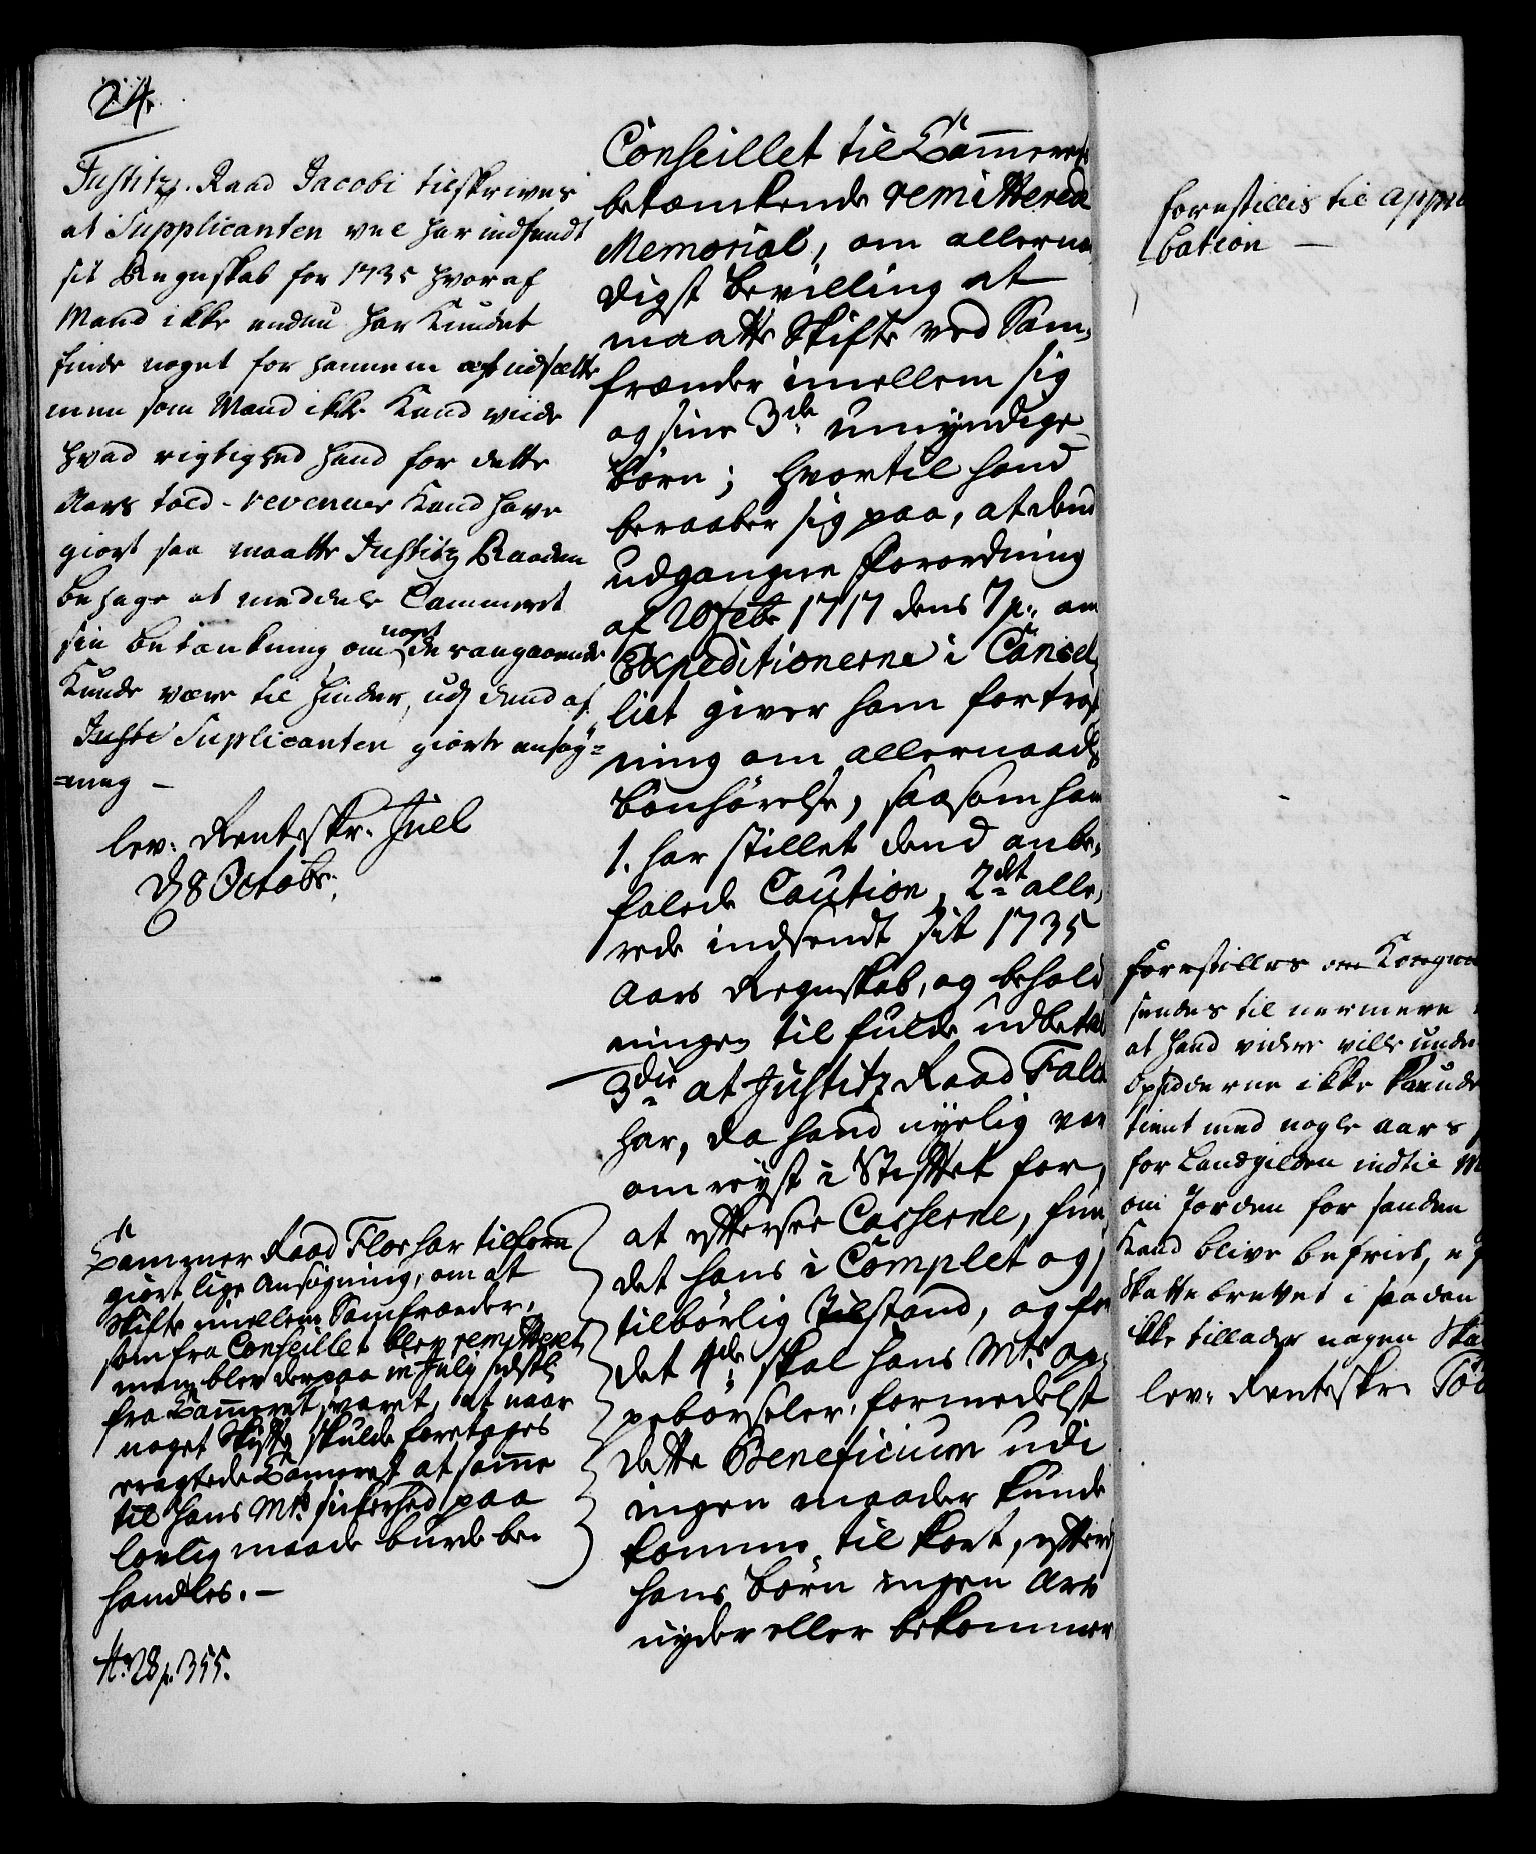 24.
Justitz. Raad Jacobi tilskrives
at Supplicanten vel har indsendt
sit Regnskab for 1735 hvoraf
Mand ikke endnu har Kundet
finde noget for hannem at udsætte
men som Mand ikke Kand viide
hvad rigtighed hand for dette
Aars told-revenuer Kand have
giort saa maatte Justitz Raaden
behage at meddele Cammeret
sin betænkning om noget derangaaende
Kunde være til hinder, udj dend af
Justi Suplicanten giorte ansøg=
=ning —
lev: Renteskr. Juel
D. 8 Octobr.
Cammer Raad Flor har tilforn
giort lige Ansøgning, om at
Skifte imellem Samfrænder,
som fra Conseillet blev remitteret,
men blev derpaa in July sidstl:
fra Cammeret svaret, at naar
noget Skifte skulde foretages
eragtede Cammeret at samme
til Hans Mts sikerhed paa
lovlig maade burde be-
handles. —
N. 28 p. 355.
Conseillet til Cammerets
betænkende remitterede
Memorial, om allerna
digst bevilling at
maatte Skifte ved Sam,
frænder imellem sig
og sine 3de umyndige
børn; hvortil hand
beraaber sig paa, at dend
udgangne Forordning
af 20 Febr 1717 dens 7 p. om
Expeditionerne i Cancel,
liet giver ham fortrøst,
ning om allernaadigst
bønhørelse, saasom hand
1. har stillet dend anbe,
falede Caution, 2det alle,
rede indsendt sit 1735
Aars Regnskab, og behold,
ningen til fulde udbetalt
3die at Justitz Raad Falch
har, da hand nyelig var
omreyst i Stiftet for,
at efftersee Casserne, fun,
det hans i Complet og
tilbørlig tilstand, og for
det 4de skal hans Mts op,
pebørseler, formedelst
dette Beneficium udi
ingen maader kunde
komme til kort, efftersom
hans børn ingen Arv
nyder eller bekommer
forestilles til appro
bation —
forestilles
sendes til nermere
at hand videre ville unde
Opsidderne ikke kunde
tient med nogle aars
for Landgilden indtil
om Jorden for sanden
Kand blive befriet,
Skatte brevet i saadan
ikke tillader nogen
lev: Renteskr: